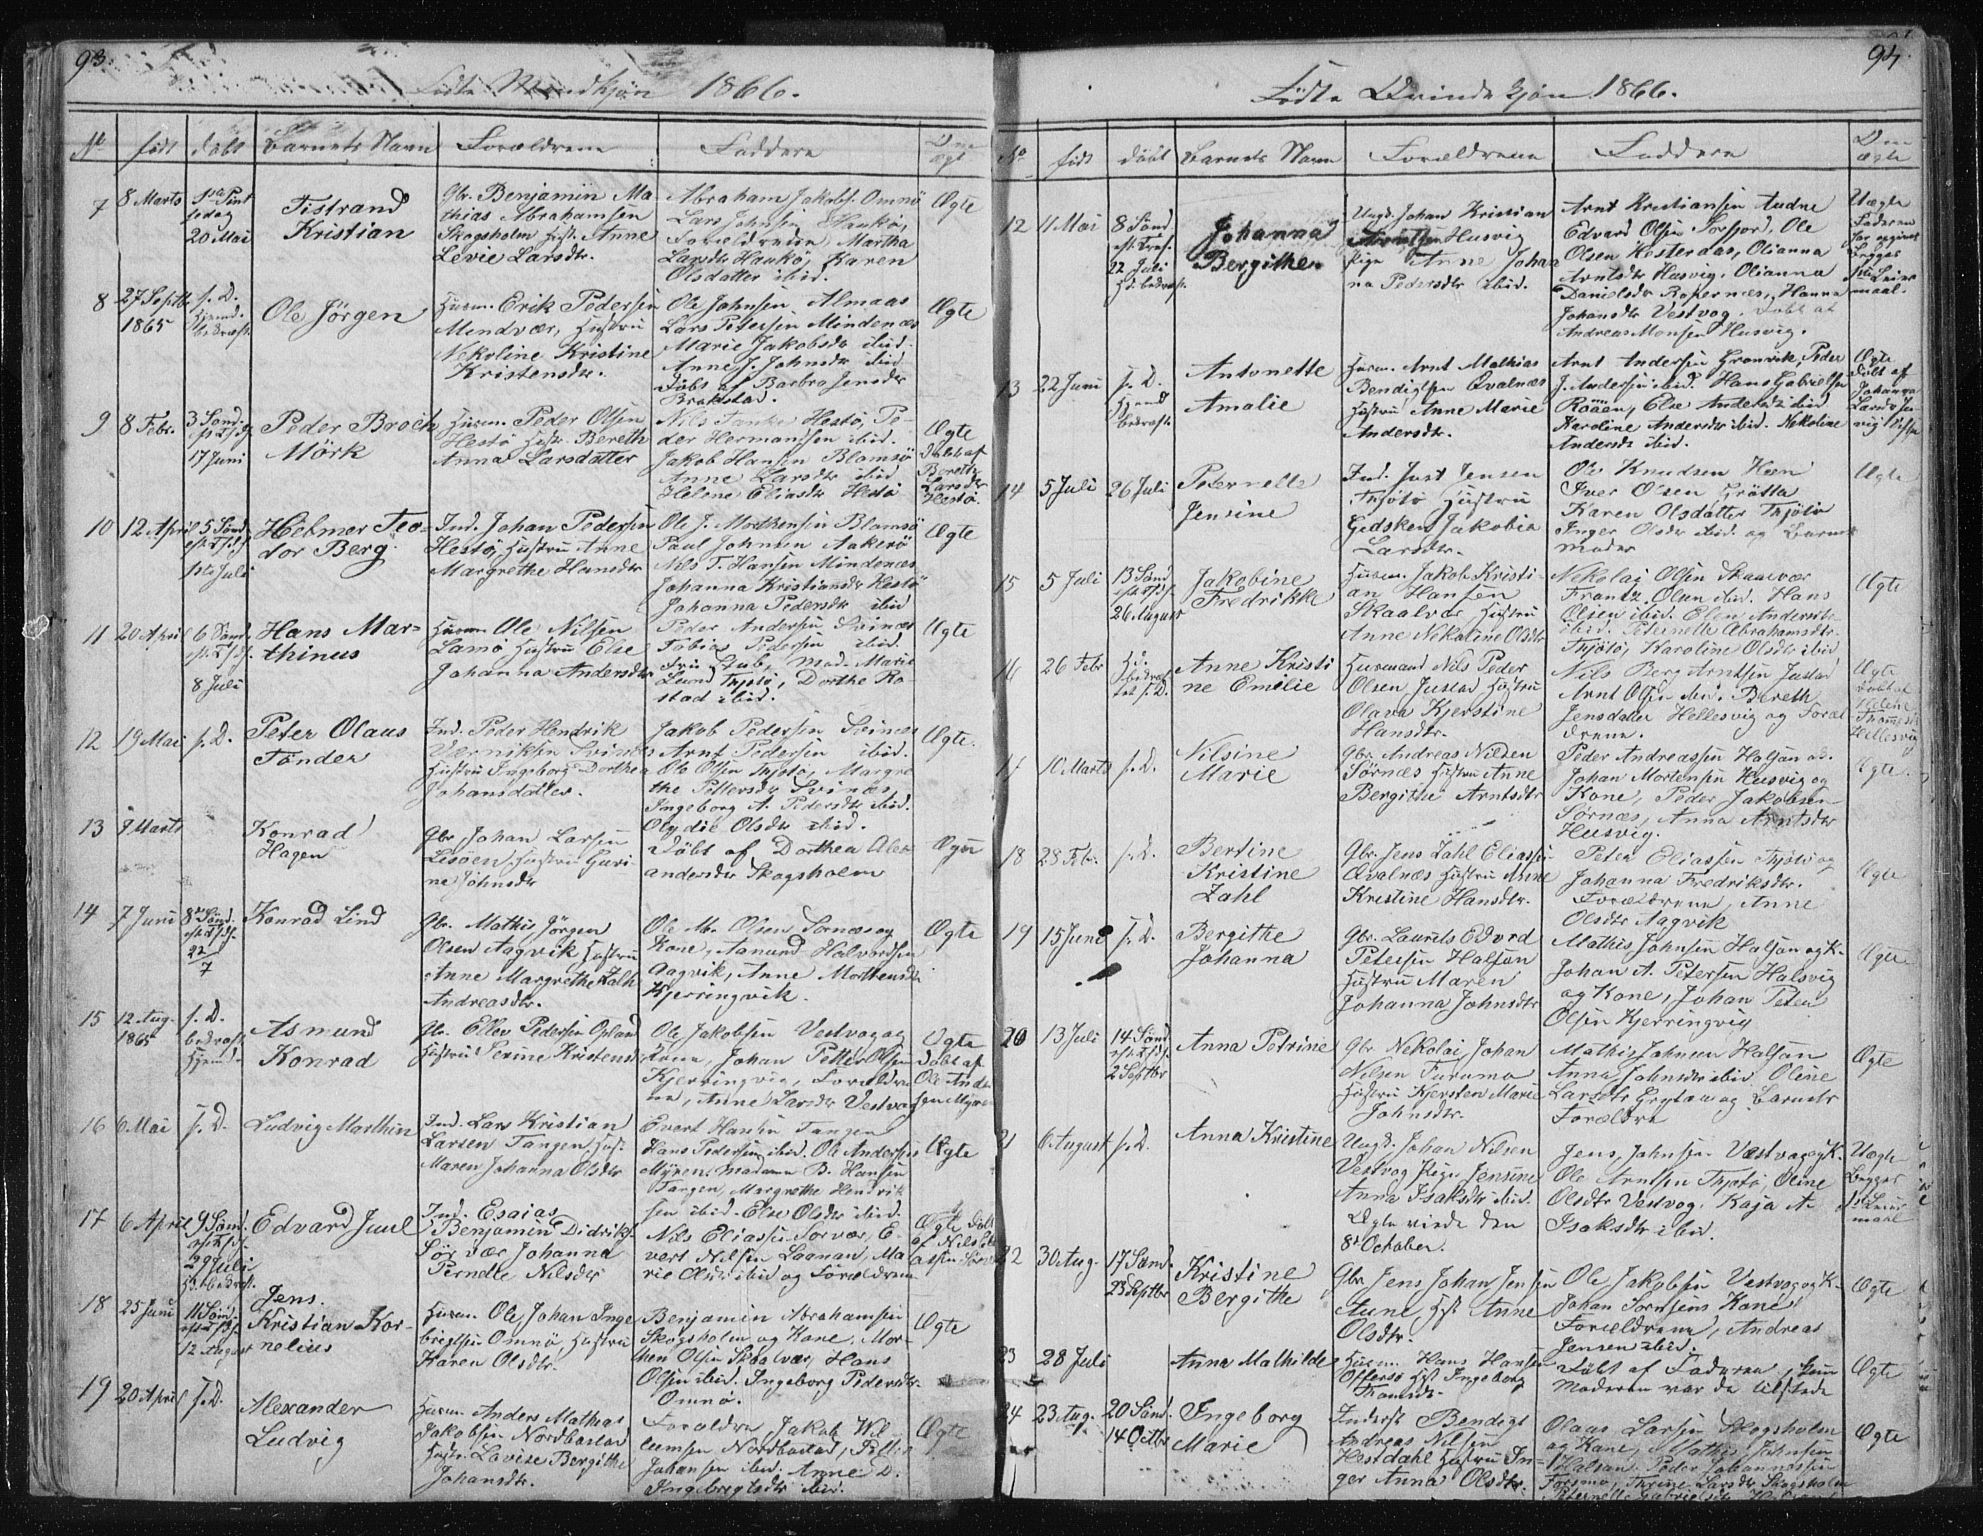 93.
Födte Mandkjön 1866.
No födt döbt Barnets Navn Forældrene Faddere Om ægte
7 8 Marts 1ste Pintsedag 20 Mai
Tistrand
Kristian
Gbr. Benjamin Ma
thias Abrahamsen
Skogsholm Hust. Anne
Levie Larsdtr.
Abraham Jakobs. Omnö
Lars Johnsen Haukö,
Forældrene, Martha
Larsdtr Haukö, Karen
Olsdatter ibid.
Ægte
8 27 Septbr 1865 s. D. Hjemd. bekræft.
Ole Jörgen
Husm. Erik Pedersen
Mindvær, Hustru
Nekoline Kristine
Kristensdtr.
Ole Johnsen Almaas
Lars Petersen Mindenæs
Marie Jakobsdtr ibid.
Anne J. Johnsdtr ibid
Döbt af Barbro Jensdtr
Brakstad.
Ægte
9 8 Febr. 3 Sönd. 17 Juni
Peder Broch
Mörk
Husm. Peder Olsen
Hestö Hustr. Bereth
Anna Larsdatter
Nils Hestö, Pe-
der Hermansen ibid.
Jakob Hansen Blomsö
Anne Larsdtr ibid
Helene Eliasdtr Hestö
Ægte
Döbt af
Bereth
Larsdtr
Hestö.
10 12 April 5 Sönd. 1ste Juli
Helmer Teo-
dor Berg.
Ind. Johan Pedersen
Hestö, Hustru Anne
Margrethe Hansdtr
Ole J. Morthensen Blomsö
Paul Johnsen Aakerö
Nils T. Hansen Mindenæs
Johanna Kristiansdtr Hestö
Johanna Pedersdtr ibid
Ægte
11 20 April 6 Sönd. 8 Juli
Hans Mar-
thinus
Husm. Ole Nilsen
Lamo Hustru Else
Johanna Andersdtr
Peder Andersen Svinæs
Tobias Pedersen ibid.
Fru Stub, Mad. Marie
Lund Thjötö, Dorthe Ro-
stad ibid.
Ægte
12 19 Mai s. D.
Peter Olaus
Tönder
Ind. Peder Hendrik
Svinæs
Hustru Ingeborg Dorthea
Johansdatter.
Jakob Pedersen Svinæs
Arnt Pedersen ibid.
Ole Olsen Thjötö, Margre
the Pettersdtr Svinæs,
Ingeborg A. Pedersdtr ibid.
Olydie Olsdtr ibid.
Ægte.
13 8 Marts
Konrad
Hagen
Gbr. Johan Larsen
Lisöen, Hustru Guri-
ne Johnsdtr
Döbt af Dorthea Alex
andersdtr Skogsholm
14 7 Juni 8de Sönd. 22/7
Konrad Lind
Gbr. Mathis Jörgen
Olsen Aagvik, Hustru
Anne Margrethe Falk
Andreasdtr.
Ole Mr. Olsen Sörnæs og
Kone, Asmund Halvordsen
Aagvik, Anne Morthensdtr
Kjerringvik.
Ægte
15 12 Aug. 1865 s. D. bekræft. Hjemd.
Asmund
Konrad
Gbr. Ellev Pedersen Opland
Hustru Perine Kristensd
Ole Jakobsen Vestvog og
Kone, Johan Petter Olsen
Kjerringvig, Forældre
ne, Anne Larsdtr Vestvog
Ægte
Döbt af
Ole Ander
sen Myren
16 6 Mai s. D.
Ludvig Marthin
Ind. Lars Kristian
Larsen Tangen, Hust.
Maren Johanna Olsdtr
Evert Hansen Tangen
Hans Pedersen ibid. Ole Andersen
Myren, Madame B. Hansen
Tangen, Margrethe Henrik
sen ibid. Else Olsdtr ibid.
Ægte
17 6 April 9 Sönd. 29 Juli Hd. bekræft.
Edvard Juul
Ind. Esaias
Benjamin Didriks.
Sörvær Johanna
Pernelle Nilsdtr
Nils Eliassen Sorvær, E-
vert Nilsen Laanan, Ma
rie Olsdtr ibid og Forældrene
Ægte Döbt
af Nils Eli
assen Sörvær
18 25 Juni 11 Sönd. 12 August
Jens.
Kristian Kor-
nelius
Husm. Ole Johan Inge
brigtsen Omnö, Hustru
Karen Olsdtr.
Benjamin Abrahamsen
Skogsholm og Kone, Mor-
then Olsen Skaalvær, Hans
Olsen ibid. Ingeborg Pedersdtr.
Omnö.
Ægte
19 20 April s. D.
Alexander
Ludvig
Husm. Anders Mathias
Jakobsen Nordbostad
Hustr. Lovise Bergithe
Johansdtr.
Forældre, Jakob Wil
lumsen Nordbostad, Petter
Johansen ibid. Anne D.
Ingebrigtsdtr ibid.
Ægte
94.
Födte Qvindekjön 1866.
No födt döbt Barnets Navn Forældrene Faddere Om ægte
12 11 Mai 8 Sönd. eft. Tref. 22 Juli Hd. bekræft.
Johanna
Bergithe.
Ungk. Johan Kristian
Arntsen Husvig
Pige Anne Johan
na Pedersdtr ibid.
Arnt Kristiansen Audne
Edvard Olsen Sörfjord, Ole
Olsen Hesterdas, Olianna
Arntsdtr Husvig, Olianna
Danielsdtr Roparnæs, Hanna
Johansdtr Vestvog. Döbt af
Andreas Monsen Husvig.
Uægte
Faderen
har
begges
1ste Leier
maal.
13 22 Juni s. D. Hjemd bekræft.
Antonette
Amalie
Husm. Arnt Mathias
Bendigtsen Qvalnæs
Hustru Anne Marie
Andersdtr.
Arnt Andersen Grönvik, Peder
J. Andersen ibid. Hans Gabrielsen
Roaen, Else Andersdtr ibid
Karoline Andersdtr ibid. Nekoline
Andersdtr ibid.
Ægte
Döbt af
Johanna
Larsdtr
14 5 Juli 26 Juli
Peternelle
Jensine
Ind. Just Jensen
Thjötö Hustru
Gidsken Jakobia
Larsdtr.
Ole Knudsen Hæn
Iver Olsen Grötta
Karen Olsdatter Thjötö
Inger Olsdtr ibid. og Barnets
moder
Ægte
15 5 Juli 13 Sönd 26 August
Jakobine
Fredrikke
Husm. Jakob Kristi-
an Hansen
Skaalvær Hustru
Anne Nekoline Olsdtr
Nekolai Olsen Skaalvær
Frantz Olsen ibid. Hans
Olsen ibid. Elen Andersdtr
ibid. Peternelle Abrahamsdtr.
Thjötö, Karoline Olsdtr ibid
Ægte
16 26 Febr Hd. bekræftet s. D.
Anne Kristi
ne Emilie
Husmand Nils Peder
Olsen Justad Hustru
Olava Kjerstine
Hansdtr.
Nils Berg Arntsen Justad
Arnt Olsen ibid. Bereth
Jensdatter Hellesvig og Foræl
drene.
Ægte
Döbt af
Helene
Thomesdtr
Hellesvig
17 10 Marts s. D.
Nilsine
Marie
Gbr. Andreas Nilsen
Sörnæs Hustru Anne
Bergithe Arntsdtr
Peder Andreassen Halsan og
Johan Mortensen Husvig og
Kone, Peder Jakobsen
Sörnæs, Anna Arntsdtr
Husvig.
Ægte
18 28 Febr. s. D.
Bertine
Kristine
Zahl
Gbr. Jens Zahl Eliassen
Qvalnæs Hustru Anne
Kristine Hansdtr.
Peter Eliassen Thjötö og
Johanna Fredriksdtr.
Forældrene, Anne
Olsdtr Aagvik
Ægte
19 15 Juni s. D.
Bergithe
Johanna
Gbr. Laurits Edvord
Petersen Halsan
Hustru Maren
Johanna Johnsdtr
Mathis Johnsen Halsan og K.
Johan A. Petersen Halsvig
og Kone, Johan Peter
Olsen Kjerringvig
Ægte
20 13 Juli 14 Sönd 2 Septbr
Anna Petrine
Gbr Nekolai Johan
Nilsen Furumo
Hustru Kjersten Marie
Johnsdtr.
Mathis Johnsen Halsan
Anna Johnsdtr ibid. Oline
Larsdtr Grytaa og Barnets
Forældre
Ægte
21 6 August s. D.
Anna Kristine
Ungk. Johan Nilsen
Vestvog Pige Jensine
Anna Isaksdtr ibid.
Ægteviede den
8de October.
Jens Johnsen Vestvog og K.
Ole Arntsen Thjötö, Oline
Olsdtr Vestvog. Kaja A.
Isaksdtr ibid.
Uægte
Begges
1ste Leier
maal
22 30 Aug. 17 Sönd. 23 Septbr
Kristine
Bergithe
Gbr Jens Johan Jensen
Aune Hst Anne
Olsdtr.
Ole Jakobsen Vestvog og K.
Johan Sörensens Kone
Forældrene, Andreas
Jensen ibid.
Ægte
23 28 Juli
Anna Mathilde
Husm. Hans Hansen
Offersö Hst Ingeborg
Döbt af Faderen,
Moderen var da tilstede
Ægte
24 23 Aug. 20 Sönd. 14 Octbr
Ingeborg
Marie
Inderst Bendigt
Andreas Nilsen
Hestdahl Hustru In-
ger Anna Olsdtr.
Olaus Larsen Skogsholm
og Kone, Mathis Johnsen
Halsan, Peder Johannessen
Forsmo, Thrine Larsdtr Skogsholm